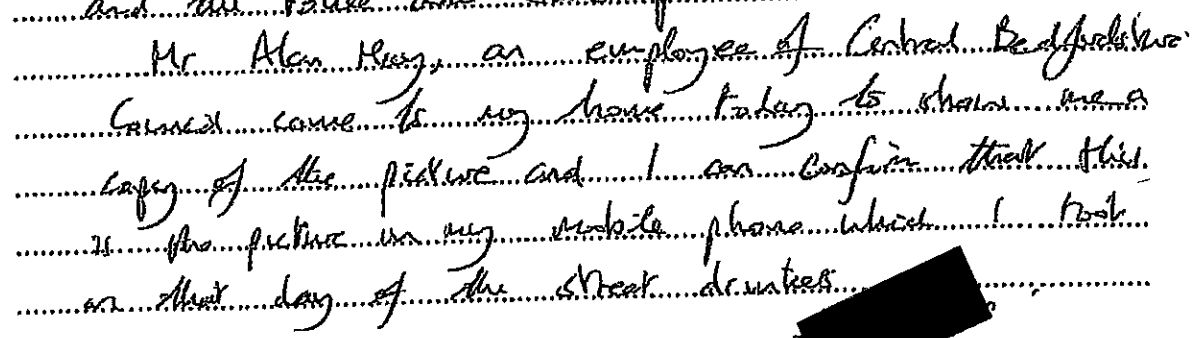 and the Police
Mr Alan May, an employee of Central Bedfordshire
Council came to my home today to show me a
copy of the picture and I can confirm that this
is the picture in my mobile phone which I took
on that day of the street drinkers